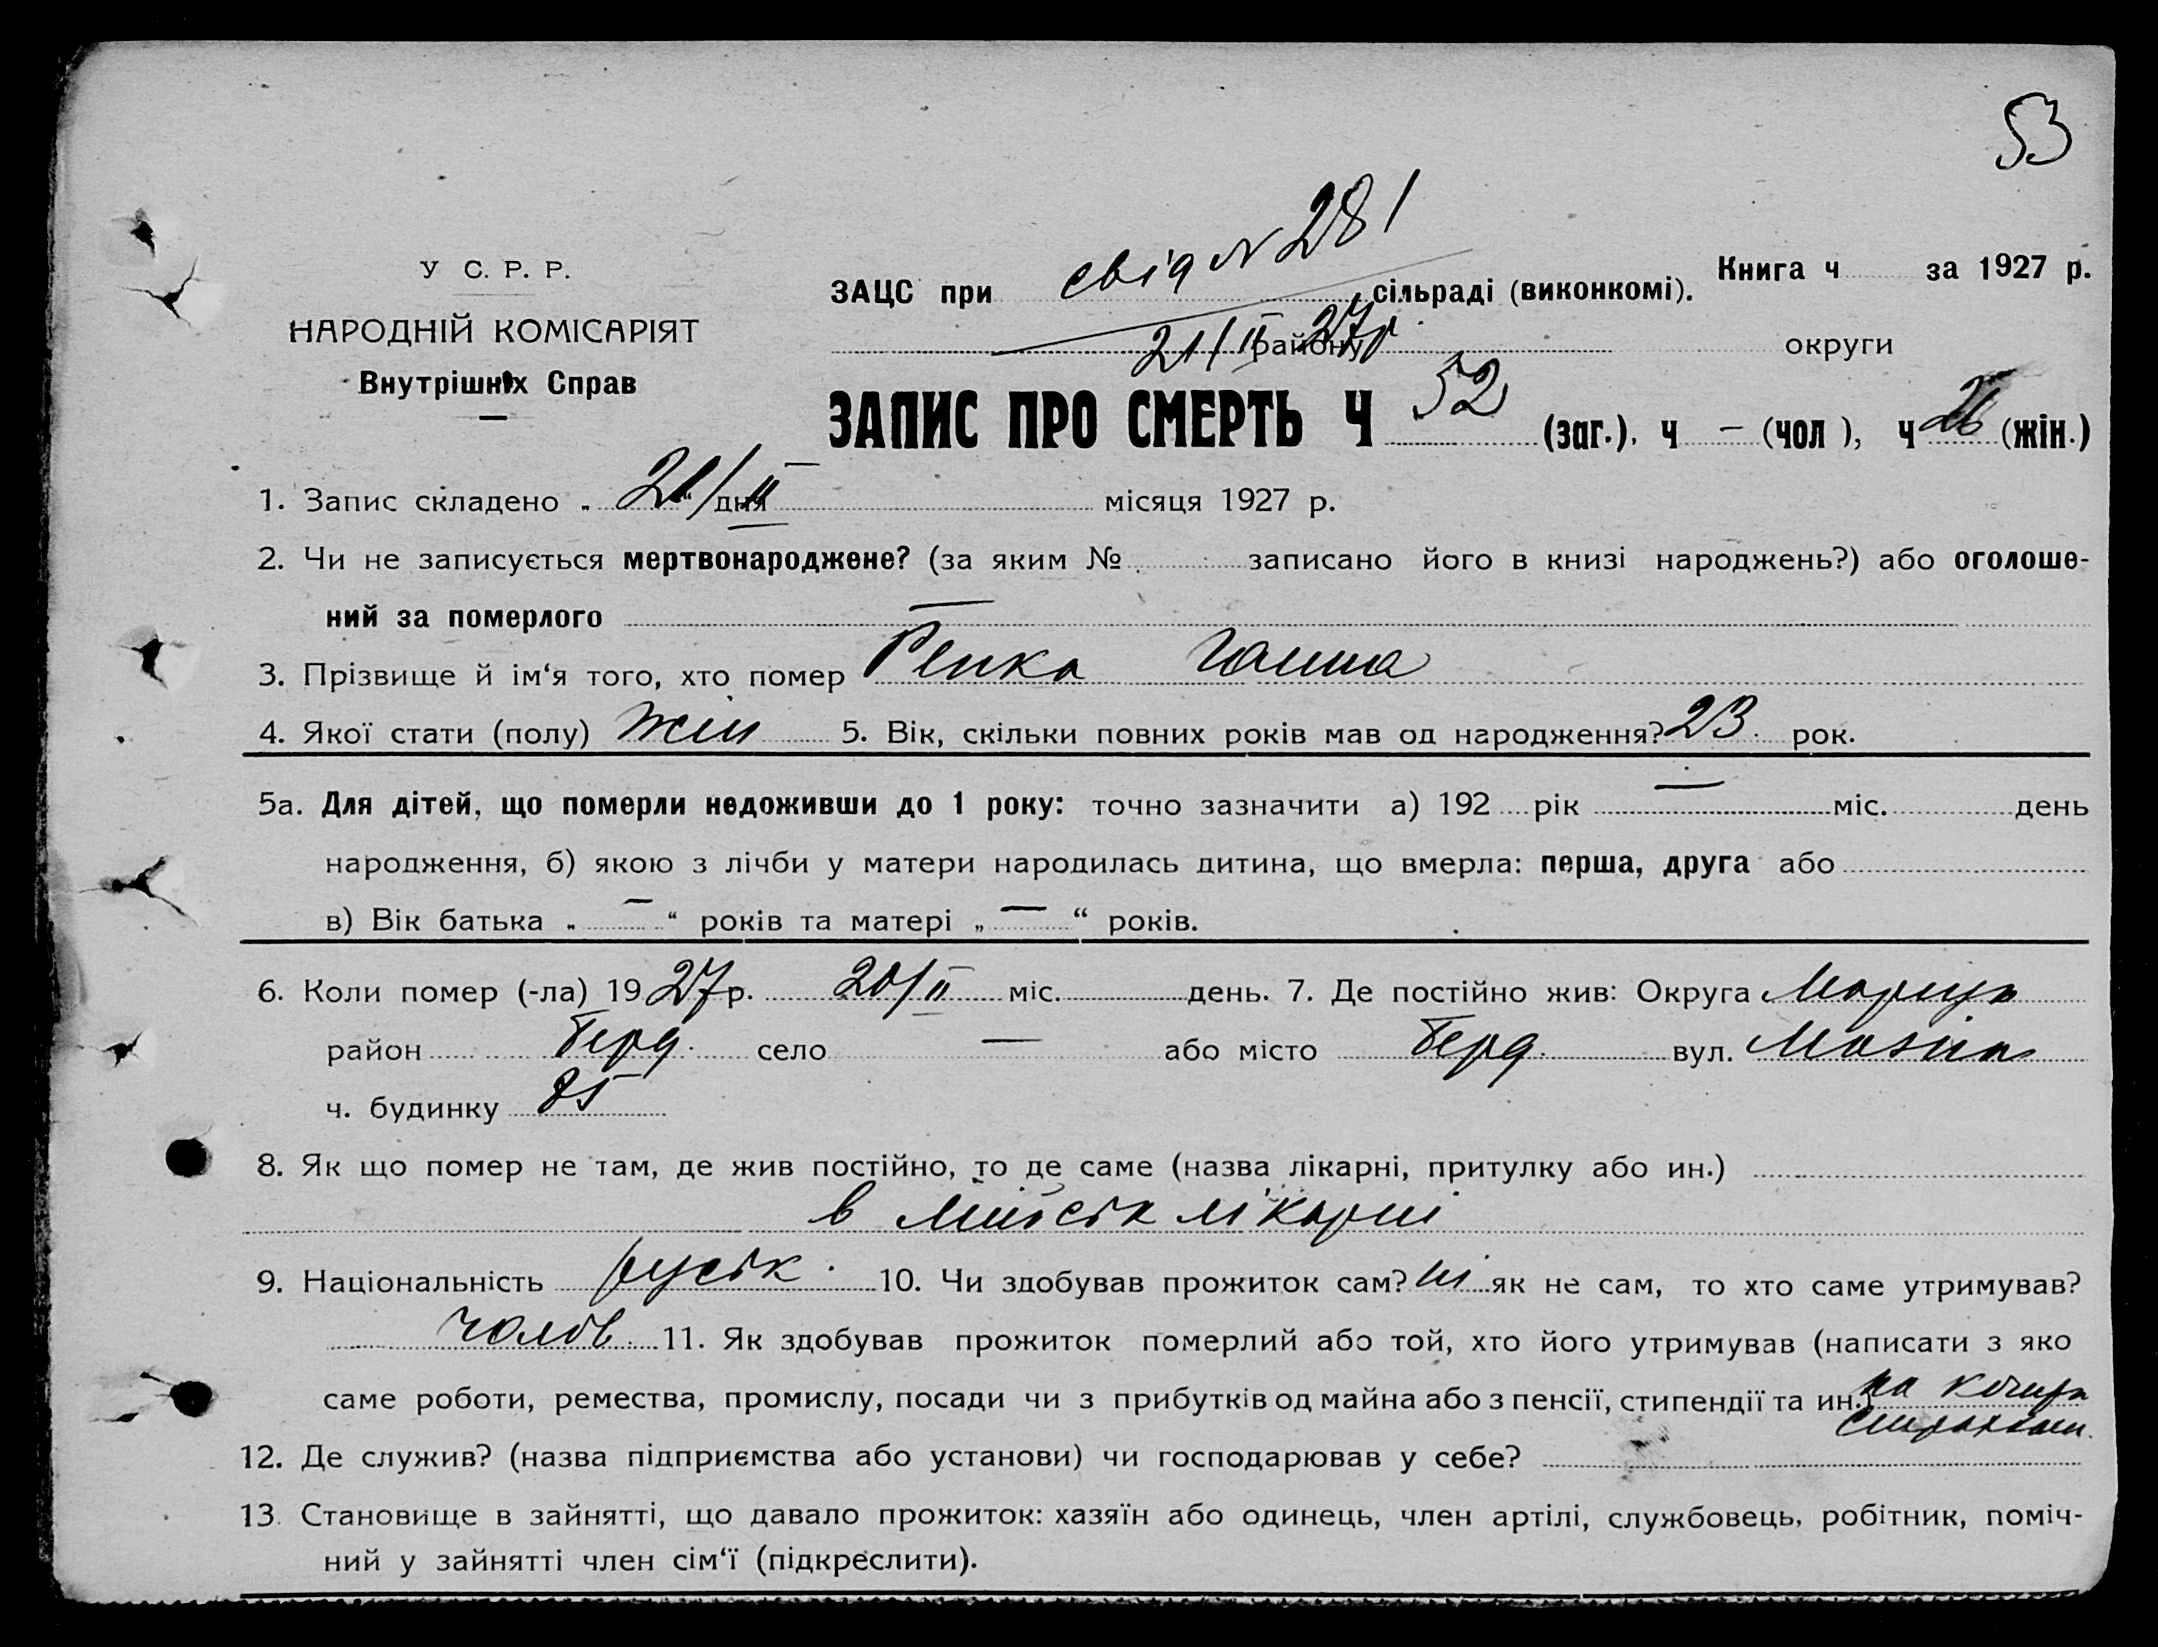 53
У С. Р. Р.
НАРОДНІЙ КОМІСАРІЯТ
Внутрішніх Справ
свід N 281
ЗАЦС при сільраді (виконкомі). Книга ч за 1927 р.
21/II 27р.
району округи
ЗАПИС ПРО СМЕРТЬ Ч 52 (заг.), ч — (чол), ч 26 (жін.)
1. Запис складено „ 21/II “ дня місяця 1927 р.
2. Чи не записується мертвонароджене? (за яким № записано його в книзі народжень?) або оголоше-
ний за померлого —
3. Прізвище й ім‘я того, хто помер Репка Ганна
4. Якої стати (полу) Жін 5. Вік, скільки повних років мав од народження? 23 рок.
5а. Для дітей, що померли недоживши до 1 року: точно зазначити а) 192 рік — міс. день
народження, б) якою з лічби у матери народилась дитина, що вмерла: перша, друга або
в) Вік батька „ — “ років та матері „ — “ років.
6. Коли помер (-ла) 1927 р. 20/II міс. день. 7. Де постійно жив: Округа Маріуп
район Берд. село — або місто Берд. вул.
ч. будинку 85
8. Як що помер не там, де жив постійно, то де саме (назва лікарні, притулку або ин.)
в міськ лікарні
9. Національність руськ. 10. Чи здобував прожиток сам? ні як не сам, то хто саме утримував?
чолов. 11. Як здобував прожиток померлий або той, хто його утримував (написати з яко
саме роботи, ремества, промислу, посади чи з прибутків од майна або з пенсії, стипендії та ин.) на
12. Де служив? (назва підприємства або установи) чи господарював у себе?
13. Становище в зайнятті, що давало прожиток: хазяїн або одинець, член артілі, службовець, робітник, поміч-
ний у зайнятті член сім‘ї (підкреслити).